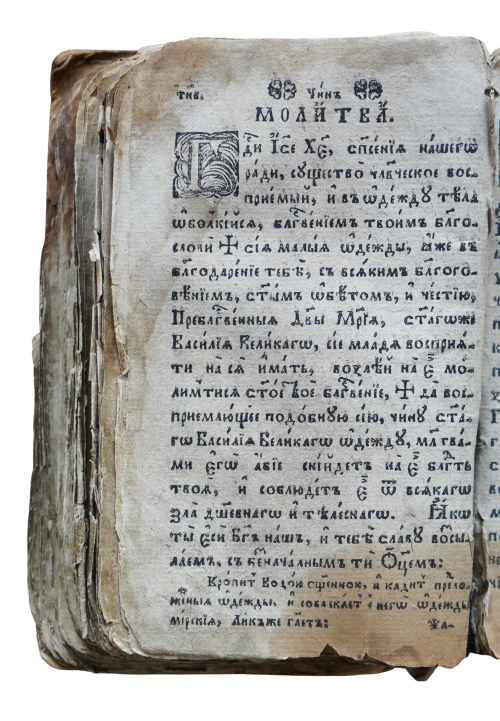 Чи́нъ
МОЛИ́ТВА.
Гди І҆се Хе, спсенїѧ нашегѡ
ради, существо члвческое вос-
приемый, и въ ѡдежду тѣла
ѡболкійсѧ, блгвенїемъ твоимъ блго-
слови ☩ сїѧ малыѧ ѡдежды, ꙗже въ
блгодаренїе тебѣ, съ всѧкимъ блгого-
вѣнїемъ, стымъ ѡбѣтомъ, и честїю,
Преблгвенныѧ Двы Мрїѧ, стагѡже
Василїѧ Великагѡ, сїе младѧ восприѧ-
ти на сѧ имать,
лимтисѧ стое Твое блгвенїе, ☩ да вос-
приемлющее подобную сїю, чину ста-
гѡ Василїѧ Великагѡ ѡдежду, млтва-
ми егѡ абїе снійдетъ на е блгть
твоѧ, и соблюдетъ е ѿ всѧкагѡ
зла дшевнагѡ и тѣлеснагѡ. Ꙗкѡ
ты еси Бгъ нашъ, и тебѣ славу восы-
лаемъ, съ безначалнымъ ти Оцемъ:
Кропит водою сщенною, и кадит предло-
женыѧ ѡдежды, и совлекает с негѡ ѡдежды
мирскїѧ, глетъ:
Ѱа-